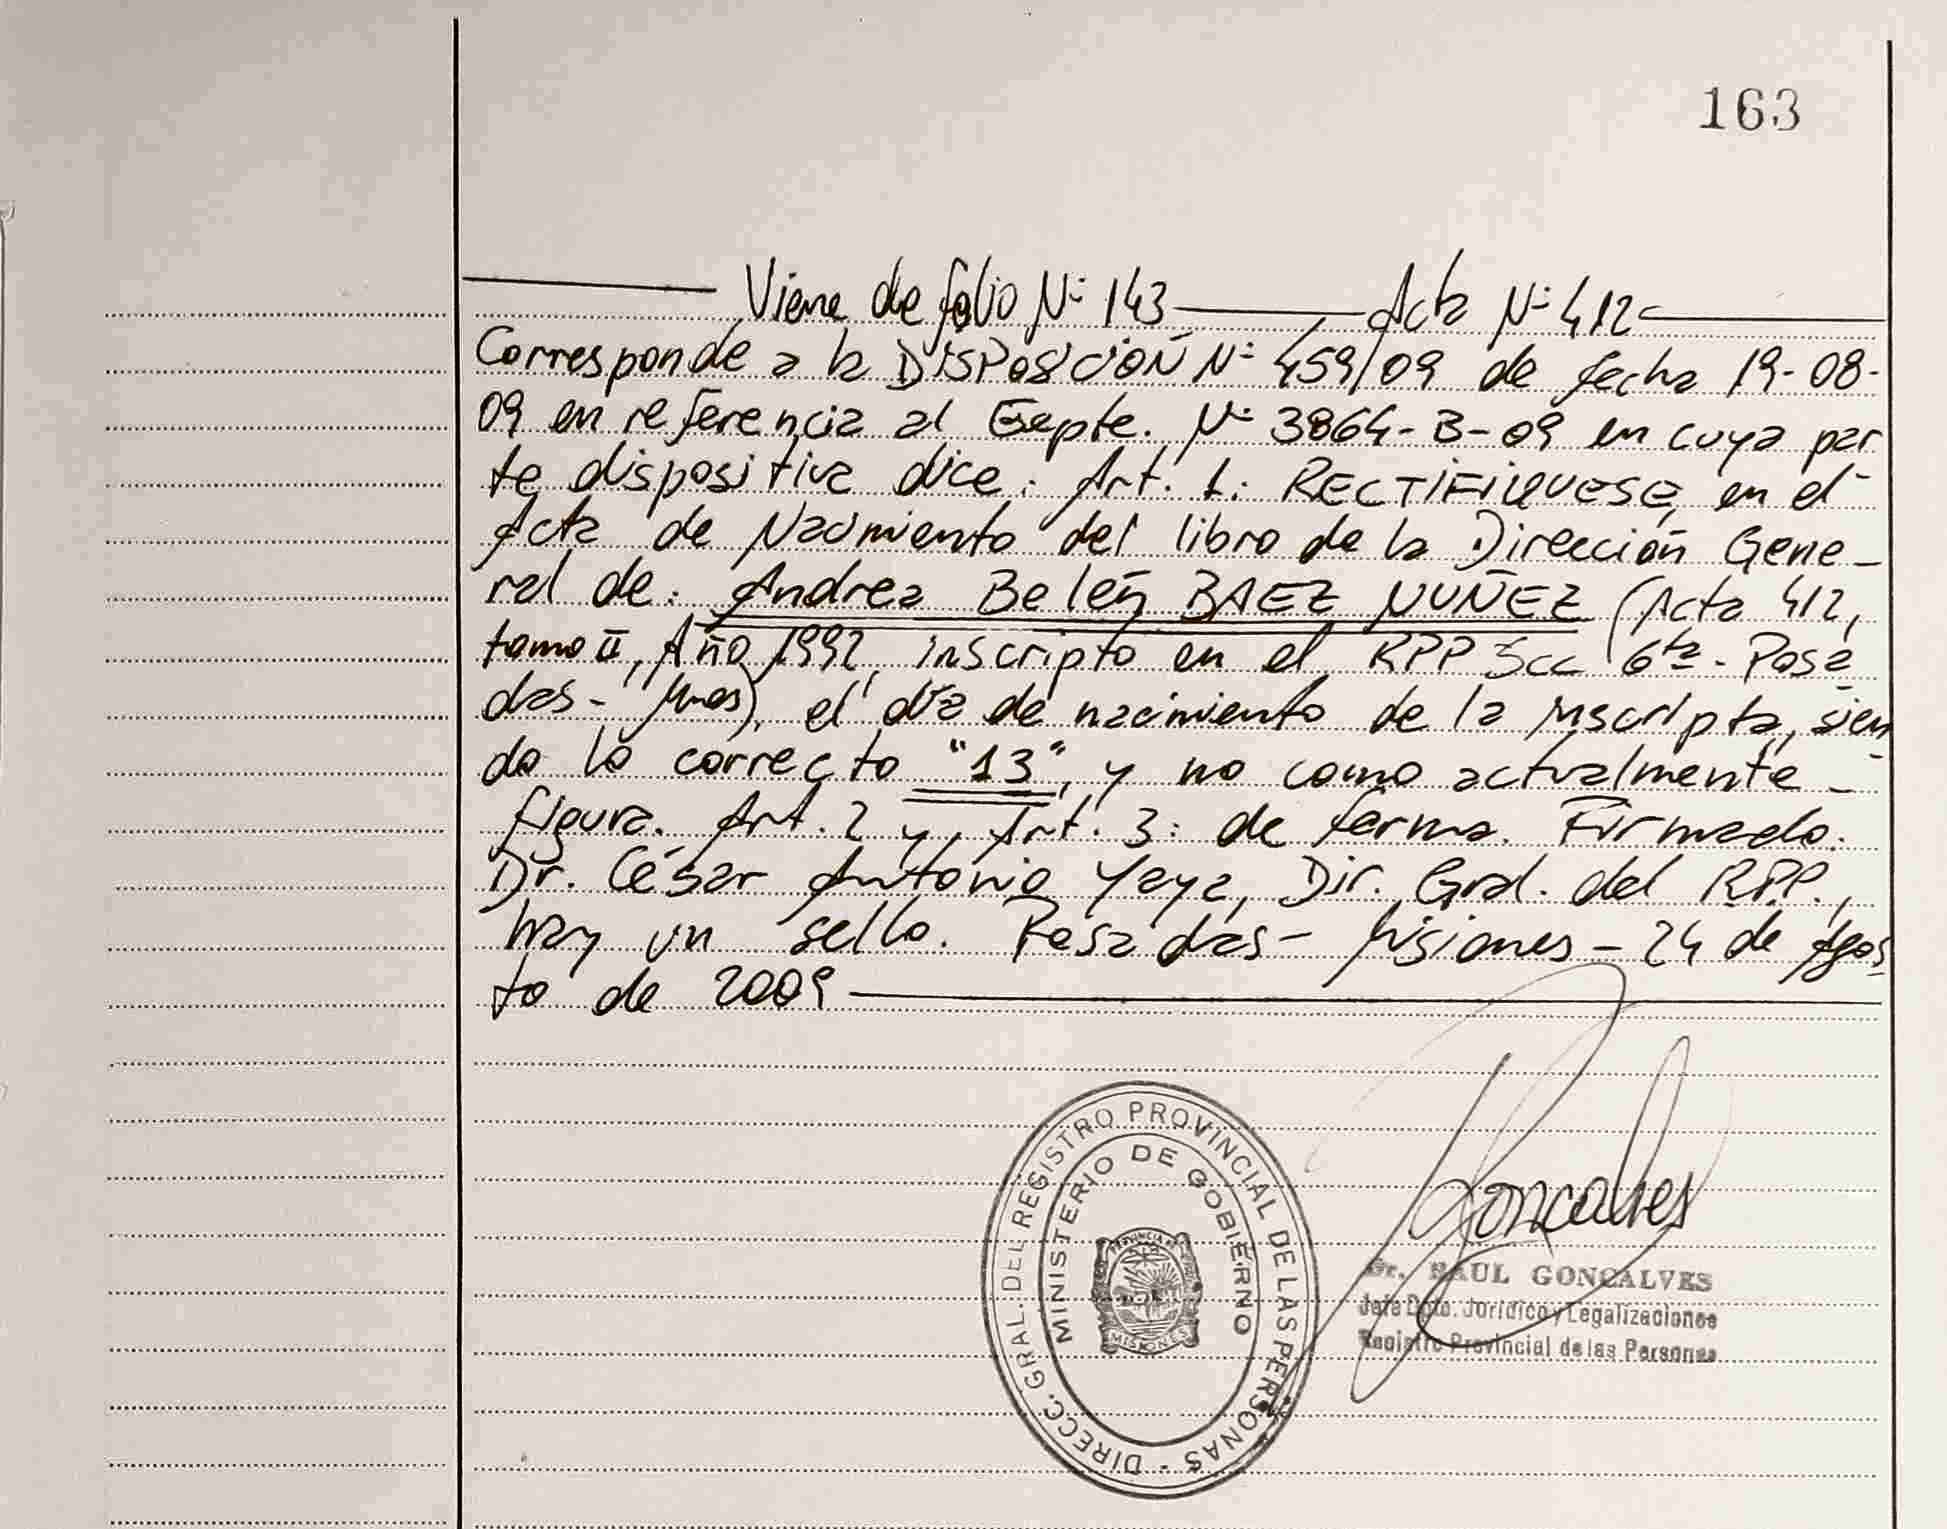 163
Viene de folio Nº 143 Acta Nº 412
Corresponde a la DISPOSICIÓN Nº 459/09 de fecha 19-08-
09 en referencia al Expte. Nº 3864-B-09 en cuya par
te dispositiva dice: Art. 1: RECTIFIQUESE, en el
Acta de Nacimiento del libro de la Dirección Gene-
ral de: Andrea Belén BAEZ NUÑEZ (Acta 412,
tomo II, Año 1992, inscripto en el RPP Scc 6ta - Posa
das - Mnes), el día de nacimiento de la inscripta, sien
do lo correcto "13", y no como actualmente -
figura. Art. 2 y Art. 3: de forma. Firmado.
Dr. César Antonio Yaya, Dir. Gral. del R.P.P.,
hay un sello. Posadas - Misiones - 24 de Agos
to de 2009
DIRECC. GRAL. DEL REGISTRO PROVINCIAL DE LAS PERSONAS -
MINISTERIO DE GOBIERNO
PROVINCIA DE
MISIONES
Goncalves
Dr. RAUL GONCALVES
Jefe Dpto. Jurídico y Legalizaciones
Registro Provincial de las Personas